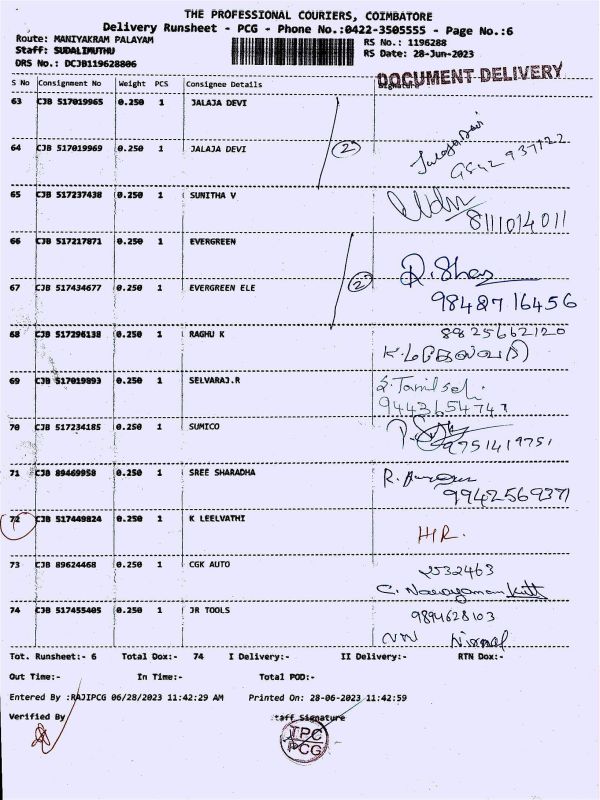 THE PROFESSIONAL COURIERS, COIMBATORE
Delivery Runsheet - PCG - Phone No.:0422-3505555 - Page No.:6
Route: MANIYAKRAM PALAYAM RS No.: 1196288
Staff: SUDALIMUTHU RS Date: 28-Jun-2023
DRS No.: DCJB119628806
DOCUMENT DELIVERY
S No Consignment No Weight PCS Consignee Details Signature
63 CJB 517019965 0.250 1 JALAJA DEVI
64 CJB 517019969 0.250 1 JALAJA DEVI 2
Jalaja Devi
65 CJB 517237438 0.250 1 SUNITHA V
8111014011
66 CJB 517217871 0.250 1 EVERGREEN
67 CJB 517434677 0.250 1 EVERGREEN ELE 2
98487 16456
68 CJB 517296138 0.250 1 RAGHU K 8825662120
69 CJB 517019893 0.250 1 SELVARAJ.R S.Tamil sel.
9443654747
70 CJB 517234185 0.250 1 SUMICO
9751419751
71 CJB 89469958 0.250 1 SREE SHARADHA
9942569371
72 CJB 517449824 0.250 1 K LEELVATHI H/R.
73 CJB 89624468 0.250 1 CGK AUTO 2532463
C. Narayanan kutt
74 CJB 517455405 0.250 1 JR TOOLS 9894628103
Nirmal
Tot. Runsheet:- 6 Total Dox:- 74 I Delivery:- II Delivery:- RTN Dox:-
Out Time:- In Time:- Total POD:-
Entered By :RAJIPCG 06/28/2023 11:42:29 AM Printed On: 28-06-2023 11:42:59
Verified By taff Signature
TPC
PCG